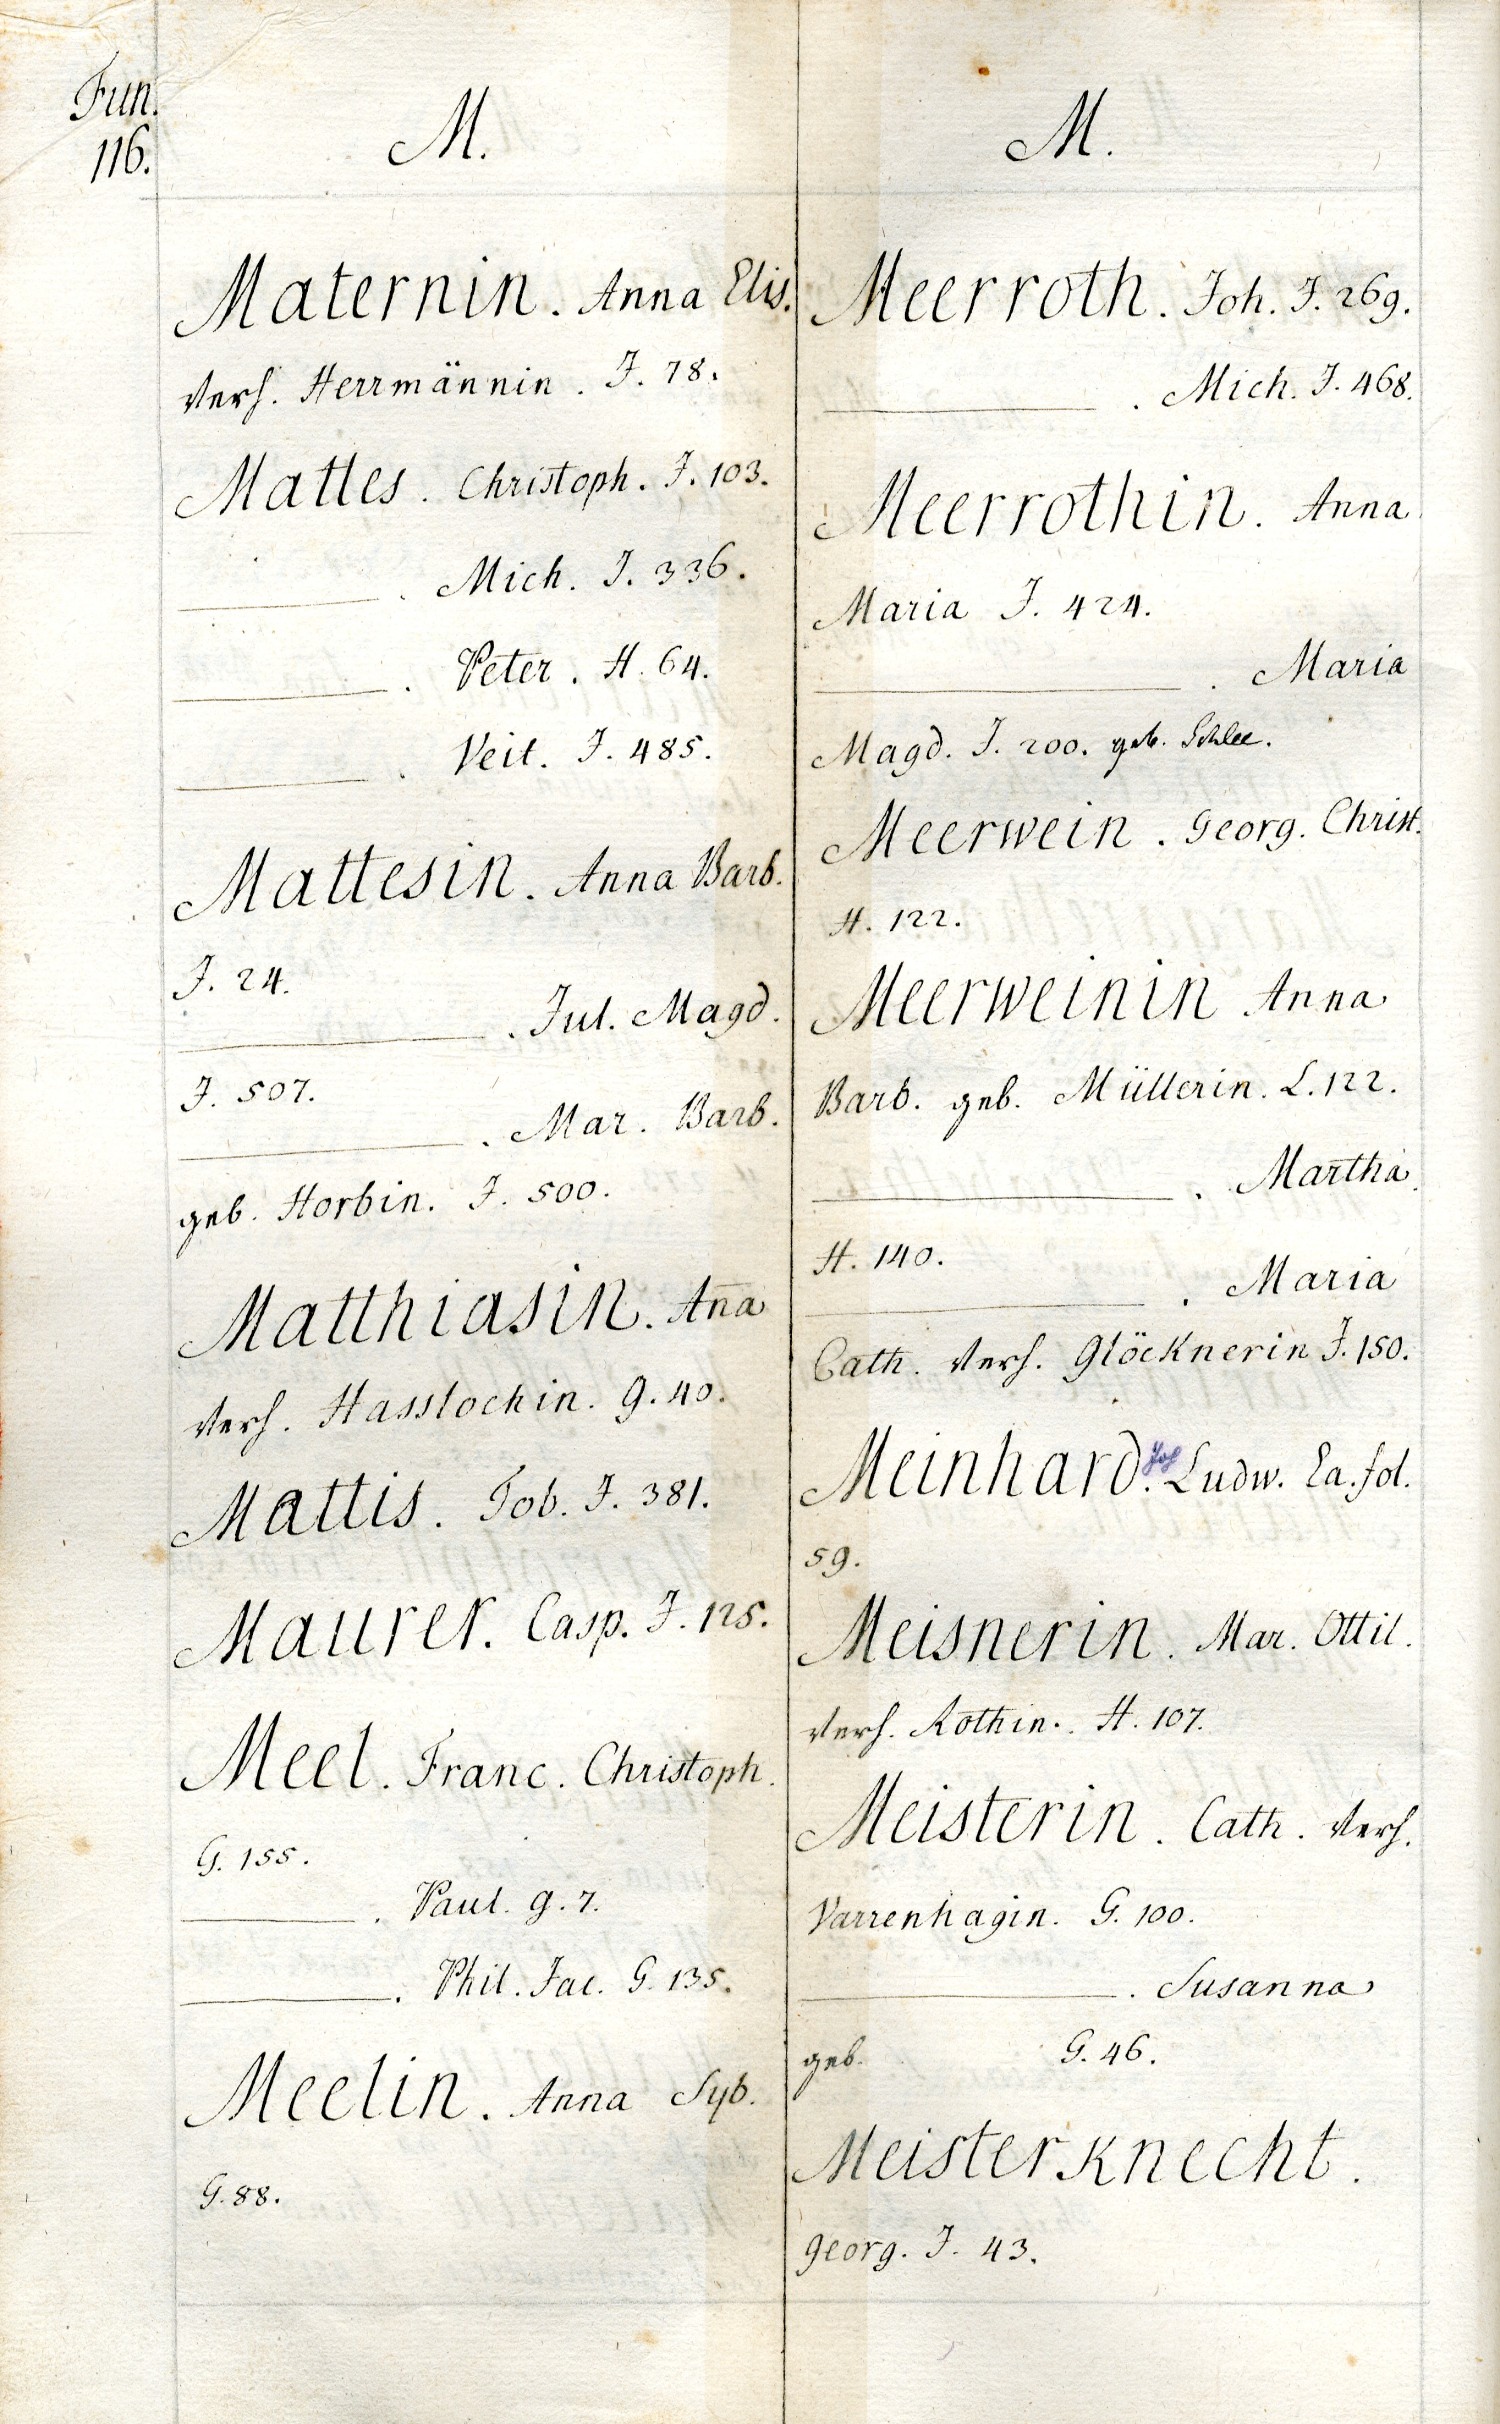 Fun.
116.
M.
Maternin. Anna Elis.
verh. Herrmännin. J. 78.
Mattes. Christoph. J. 103.
. Mich. J. 336.
. Peter. H. 64.
. Veit. J. 485.
Mattesin. Anna Barb.
J. 24.
. Jul. Magd.
J. 507.
. Mar. Barb.
geb. Horbin. J. 500.
Matthiasin. Ana̅
verh. Hasslochin. g. 40.
Mattis. Tob. J. 381.
Maurer. Casp. J. 125.
Meel. Franc. Christoph.
G. 155.
. Paul. g. 7.
. Phil. Jac. G. 135.
Meelin. Anna Syb.
G. 88.
M.
Meerroth. Joh. J. 269.
. Mich. J. 468.
Meerrothin. Anna
Maria J. 424.
. Maria
Magd. J. 200. geb. Schlee.
Meerwein. Georg. Christ.
H. 122.
Meerweinin Anna
Barb. geb. Müllerin. L. 122.
. Martha.
H. 140.
. Maria
Cath. verh. Glöcknerin J. 150.
Meinhard. Joh Ludw. Ea. fol.
59.
Meisnerin. Mar. Ottil.
verh. Rothin. H. 107.
Meisterin. Cath. verh.
Varrenhagin. G. 100.
. Susanna
geb. G. 46.
Meisterknecht.
georg. J. 43.